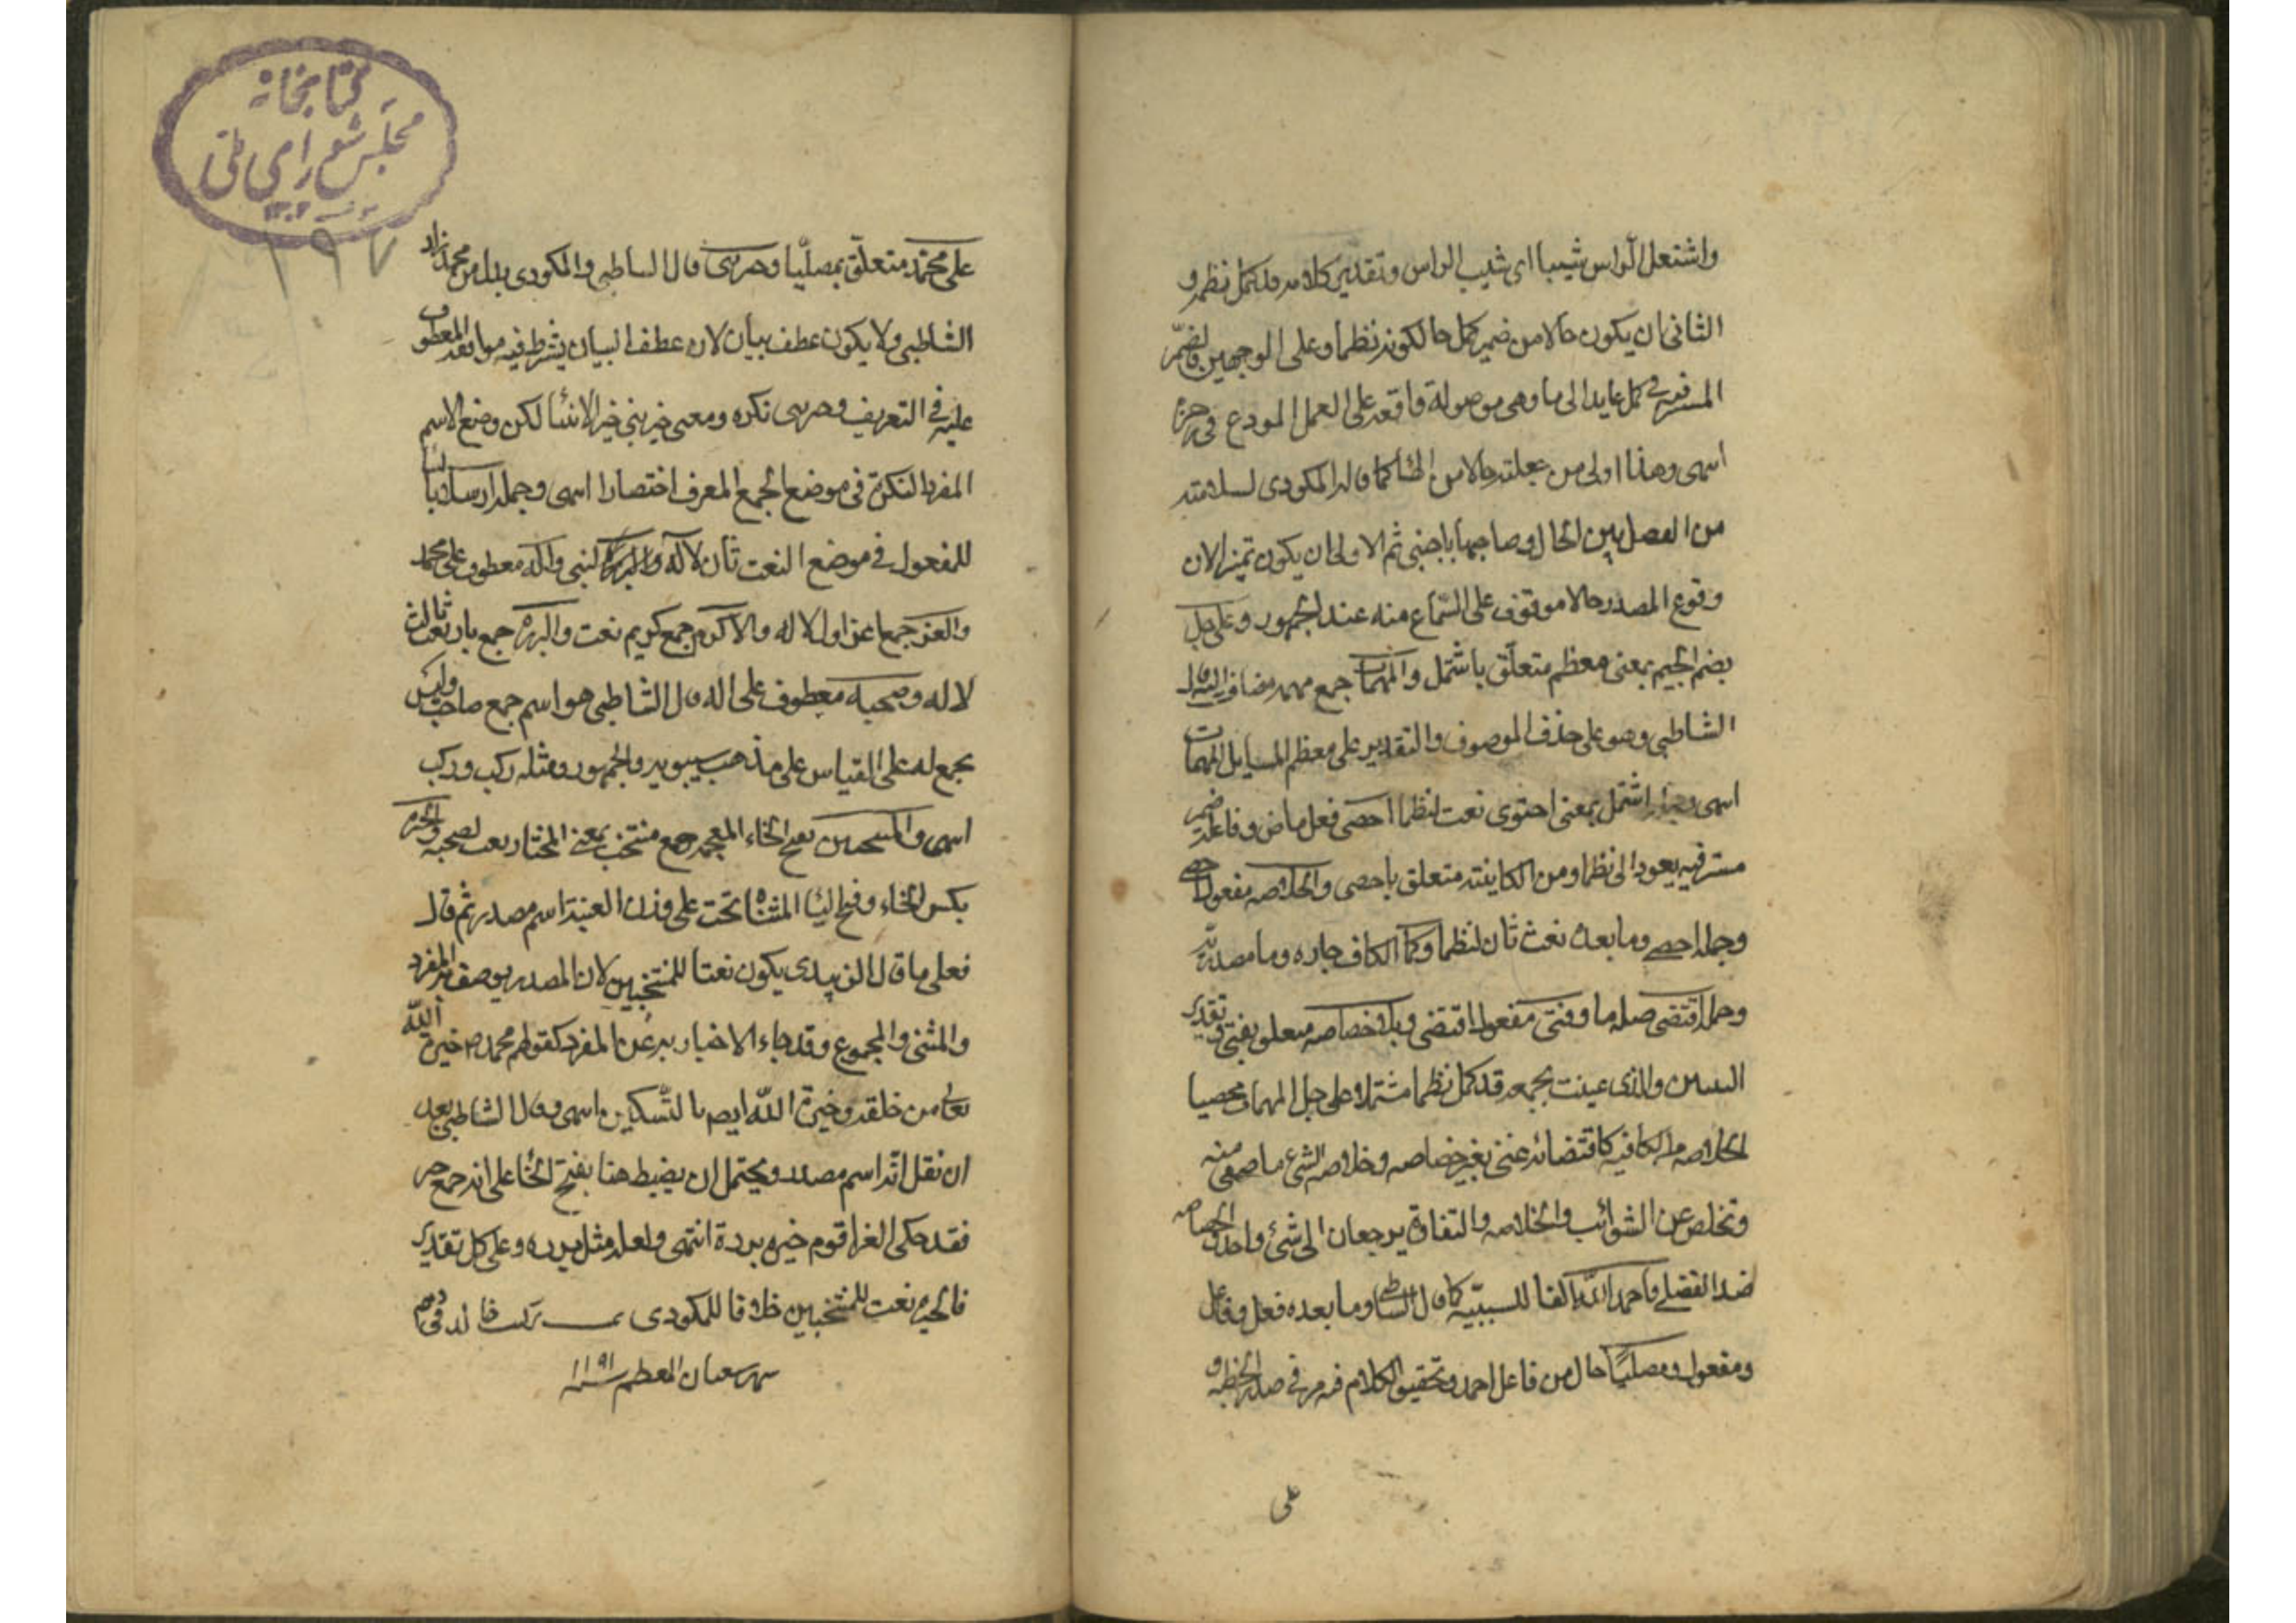 واشتعل الرأس شيبا اى شيب الراس وتقدير كلامه قد كمل نظمه و
الثانى ان يكون حالا من ضمير كمل حالكونه نظما وعلى الوجهين فالضمير
المستتر فى كمل عايد الى ما وهى موصولة واقعة على العمل المودع فى رجزه
انتهى وهذا اولى من جعلته حالا من الهاء كما قاله المكودى لسلامته
من الفصل بين الحال وصاحبها باجنبى ثم الاولى ان يكون تميزا لان
وقوع المصدر حالا موقوف على السماع منه عند الجمهور وعلى جل
بضم الجيم بمعنى معظم متعلق باشتمل والمهمات جمع مهمة مضاف اليه قال
الشاطبى وهو على حذف الموصوف والتقدير على معظم المسايل المهمات
انتهى وجملة اشتمل بمعنى احتوى نعت لنظما احصى فعل ماض وفاعله ضمير
مستتر فيه يعود الى نظما ومن الكافية متعلق باحصى والخلاصه مفعول احصى
وجملة احصى وما بعده نعت ثان لنظما وكما الكاف جاره وما مصدرية
وجملة اقتضى صله ما وغنى مفعول اقتضى وبلا خصاصه متعلق بغنى وتقدير
البيتين والذى عنيت بجمعه قد كمل نظما مشتملا على جل المهمات محصيا
الخلاصه من الكافيه كاقتضائه غنى بغير خصاصه وخلاصه الشئ ما صفى منه
وتخلص عن الشوائب والخلاصه والنقاوة يرجعان الى شئ واحد والخصاصه
ضد الغنى فاحمد الله الفا للسببيه كما قال الشاطبى وما بعده فعل وفاعل
ومفعول ومصليا حال من فاعل احمد وتحقيق الكلام فيه مر فى صدر الخطبه و
على
كتابخانه
مجلس شوراى ملى
١٣٠٢
١٩٧
على محمد متعلق بمصليا وخير نبى قال الشاطبى والمكودى بدل من محمد زاد
الشاطبى ولا يكون عطف بيان لان عطف البيان يشترط فيه موافقة المعطوف
عليه فى التعريف وخير نبى نكره ومعنى خير نبى خير الانبيا لكن وضع الاسم
المفرد النكرة فى موضع الجمع المعرف اختصارا انتهى وجملة ارسل بالبنا
للمفعول فى موضع النعت ثان لنبى وآله معطوف على محمد
والغر جمع اغر نعت اول لاله والاكرام جمع كريم نعت والبرره جمع بار نعت ثالث
لاله وصحبه معطوف على اله قال الشاطبى هو اسم جمع صاحب وليس
بجمع له على القياس على مذهب سيبويه والجمهور ومثله ركب وركب
انتهى والمنتخبين بفتح الخاء المعجمه جمع منتخب بمعنى المختار نعت لصحبه والخيره
بكسر الخاء وفتح اليا المثناه تحت على وزن العنبة اسم مصدر ثم قال
فعلى ما قال الزبيدى يكون نعتا للمنتخبين لان المصدر يوصف به المفرد
والمثنى والمجموع وقد جاء الاخبار به عن المفرد كقولهم محمد ص خيرة الله
تعالى من خلقه وخيرة الله ايضا بالتسكين انتهى وقال الشاطبى بعد
ان نقل انه اسم مصدر ويحتمل ان يضبط هنا بفتح الخا على انه جمع خير
فقد حكى الفرا قوم خيرة بررة انتهى ولعله مثل برره وعلى كل تقدير
فالخيره نعت للمنتخبين خلافا للمكودى تمت
شهر شعبان المعظم سنه ١١٩١